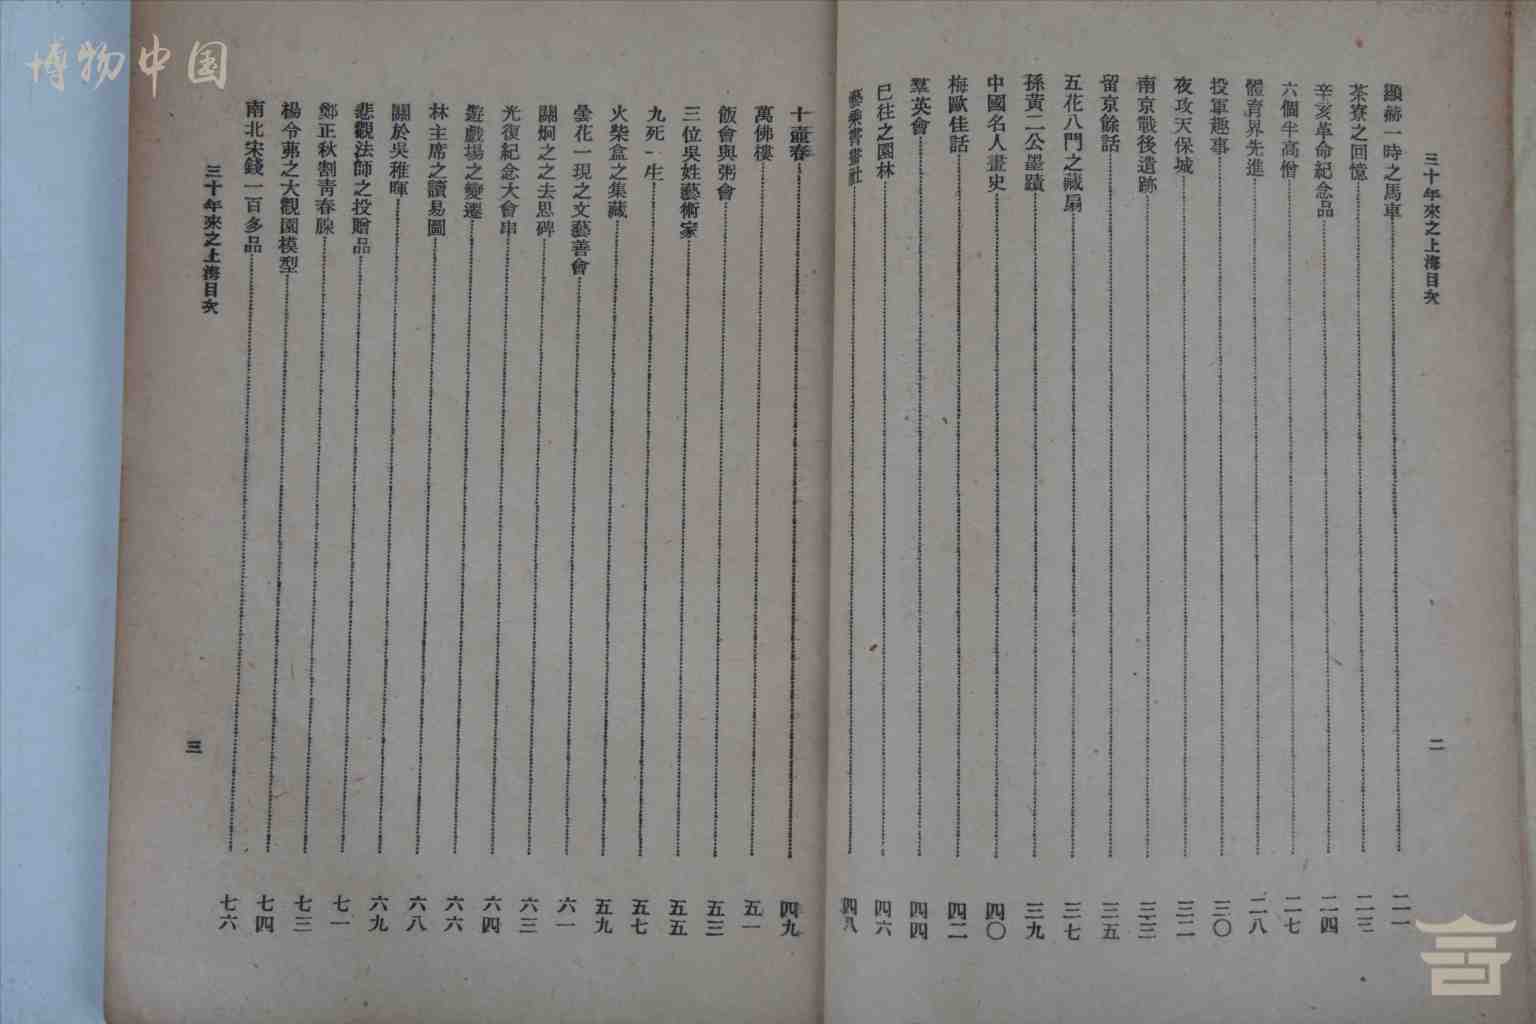 博物中国
三十年來之上海目次
二
顯赫一時之馬車 二一
茶寮之回憶 二三
辛亥革命紀念品 二四
六個半高僧 二七
體育界先進 二八
投軍趣事 三〇
夜攻天保城 三二
南京戰後遺跡 三三
留京餘話 三五
五花八門之藏扇 三七
孫黃二公墨蹟 三九
中國名人畫史 四〇
梅歐佳話 四二
羣英會 四四
已往之園林 四六
藝乘書畫社 四八
十壺春 四九
萬佛樓 五一
飯會與粥會 五三
三位吳姓藝術家 五五
九死一生 五七
火柴盒之集藏 五九
曇花一現之文藝善會 六一
關炯之之去思碑 六三
光復紀念大會串 六四
遊戲場之變遷 六六
林主席之讀易圖 六八
關於吳稚暉 六九
悲觀法師之投贈品 七一
鄭正秋割青春腺 七三
楊令茀之大觀園模型 七四
南北宋錢一百多品 七六
三十年來之上海目次
三